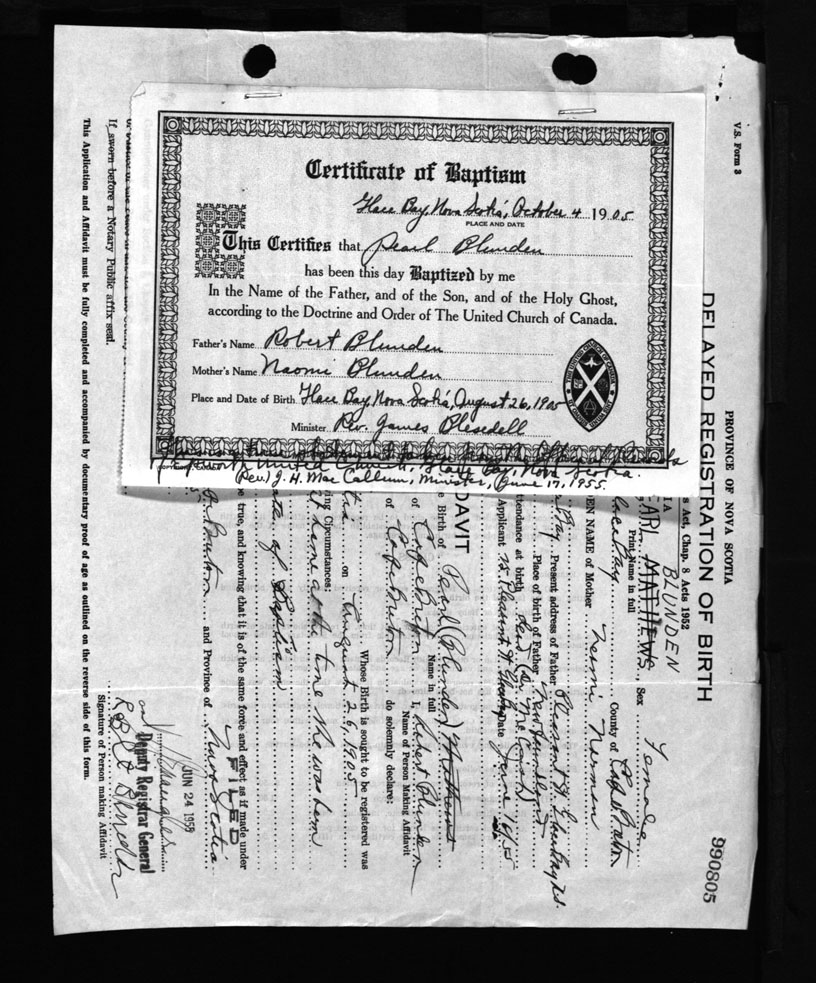 Certificate of Baptism
Glace Bay, Nova Scotia, October 4 1905
PLACE AND DATE
This Certifies that Pearl Blunden
has been this day Baptized by me
In the Name of the Father, and of the Son, and of the Holy Ghost,
according to the Doctrine and Order of The United Church of Canada.
Father's Name Robert Blunden
Mother's Name Naomi Blunden
Place and Date of Birth Glace Bay, Nova Scotia, August 26, 1905
Minister Rev. James Blesedell
United Church, Glace Bay, Nova Scotia.
(Rev.) J. H. Mac Callum, Minister, June 17, 1955.
V.S. Form 3
PROVINCE OF NOVA SCOTIA
DELAYED REGISTRATION OF BIRTH
990805
s Act, Chap. 8 Acts 1952
BLUNDEN
EARL MATTHEWS, Sex Female
Print Name in full
lace Bay County of Cape Breton
DEN NAME of Mother
Bay Present address of Father Pleasant St.
Place of birth of Father Newfoundland
ttendance at birth
Applicant 15 Pleasant St. Date June 16/55
DAVIT
e Birth of Pearl (Blunden) Matthews
Name in full
of Cape Breton I, Robert Blunden
Name of Person Making Affidavit
of Cape Breton do solemnly declare:
Whose Birth is sought to be registered was
on August 26, 1905
ing Circumstances:
at home at the time she was born
ate of Baptism
be true, and knowing that it is of the same force and effect as if made under
Breton and Province of Nova Scotia
FILED
JUN 24 1955
Deputy Registrar General
Signature of Person making Affidavit
If sworn before a Notary Public affix seal.
This Application and Affidavit must be fully completed and accompanied by documentary proof of age as outlined on the reverse side of this form.